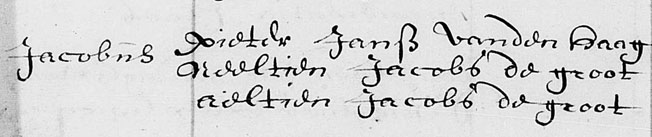 Jacobus Pieter Janß vanden Haag
Neeltien Jacobs de groot
Aeltien Jacobs de groot